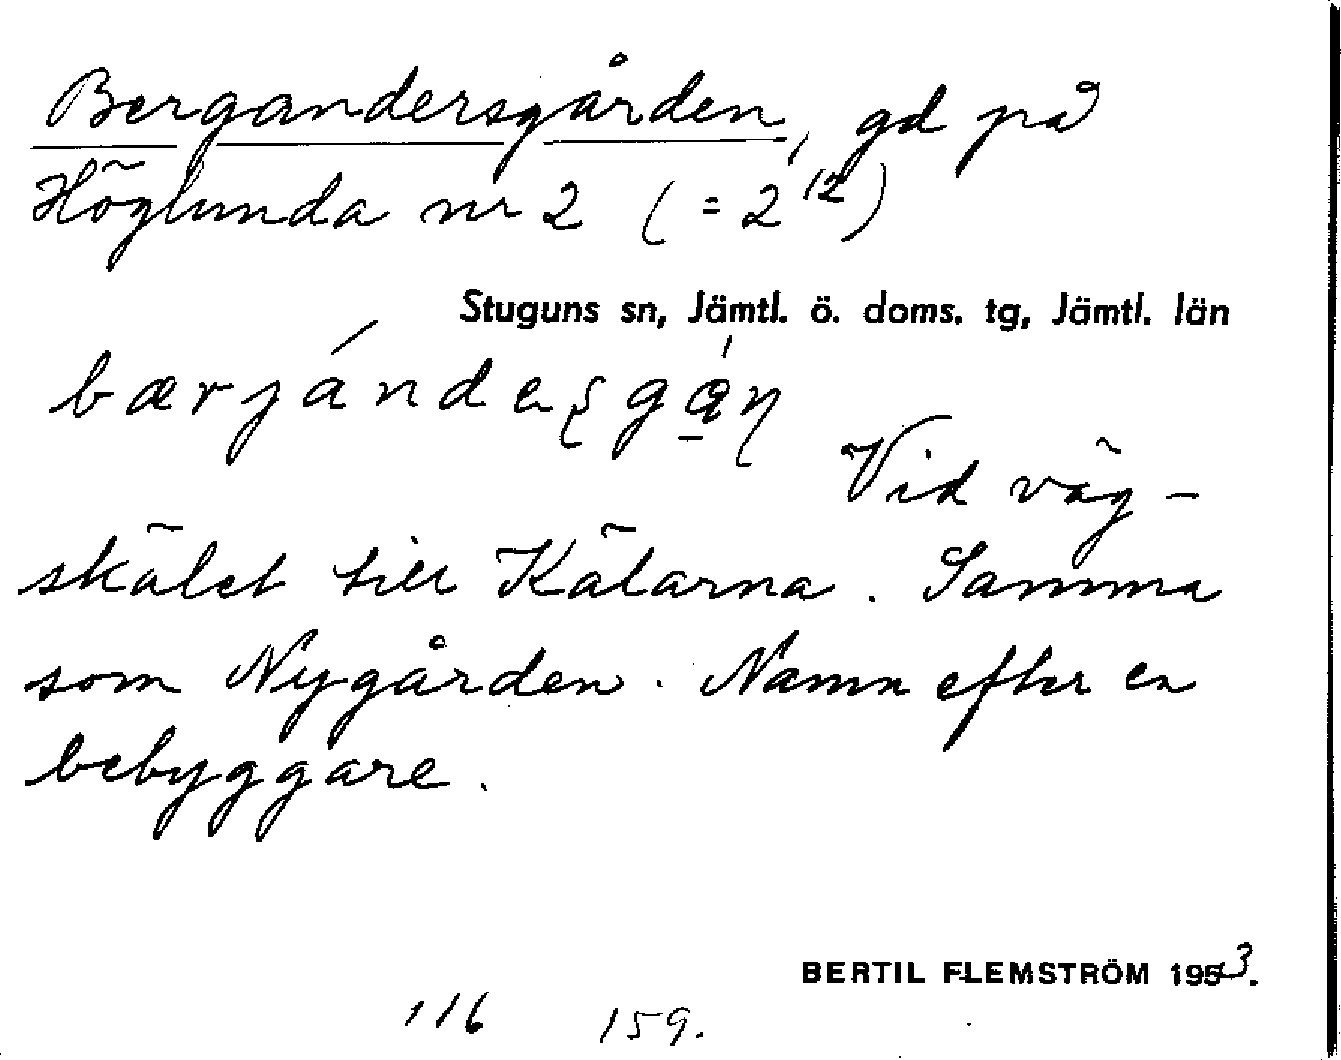 Bergandersgården, gd på
Höglunda nr 2 (= 2¹²)
Stuguns sn, Jämtl. ö. doms. tg, Jämtl. län
bærjándeʂgá̱ɳ
Vid väg-
skälet till Kälarna. Samma
som Nygården. Namn efter en
bebyggare.
BERTIL FLEMSTRÖM 1953.
116 159.